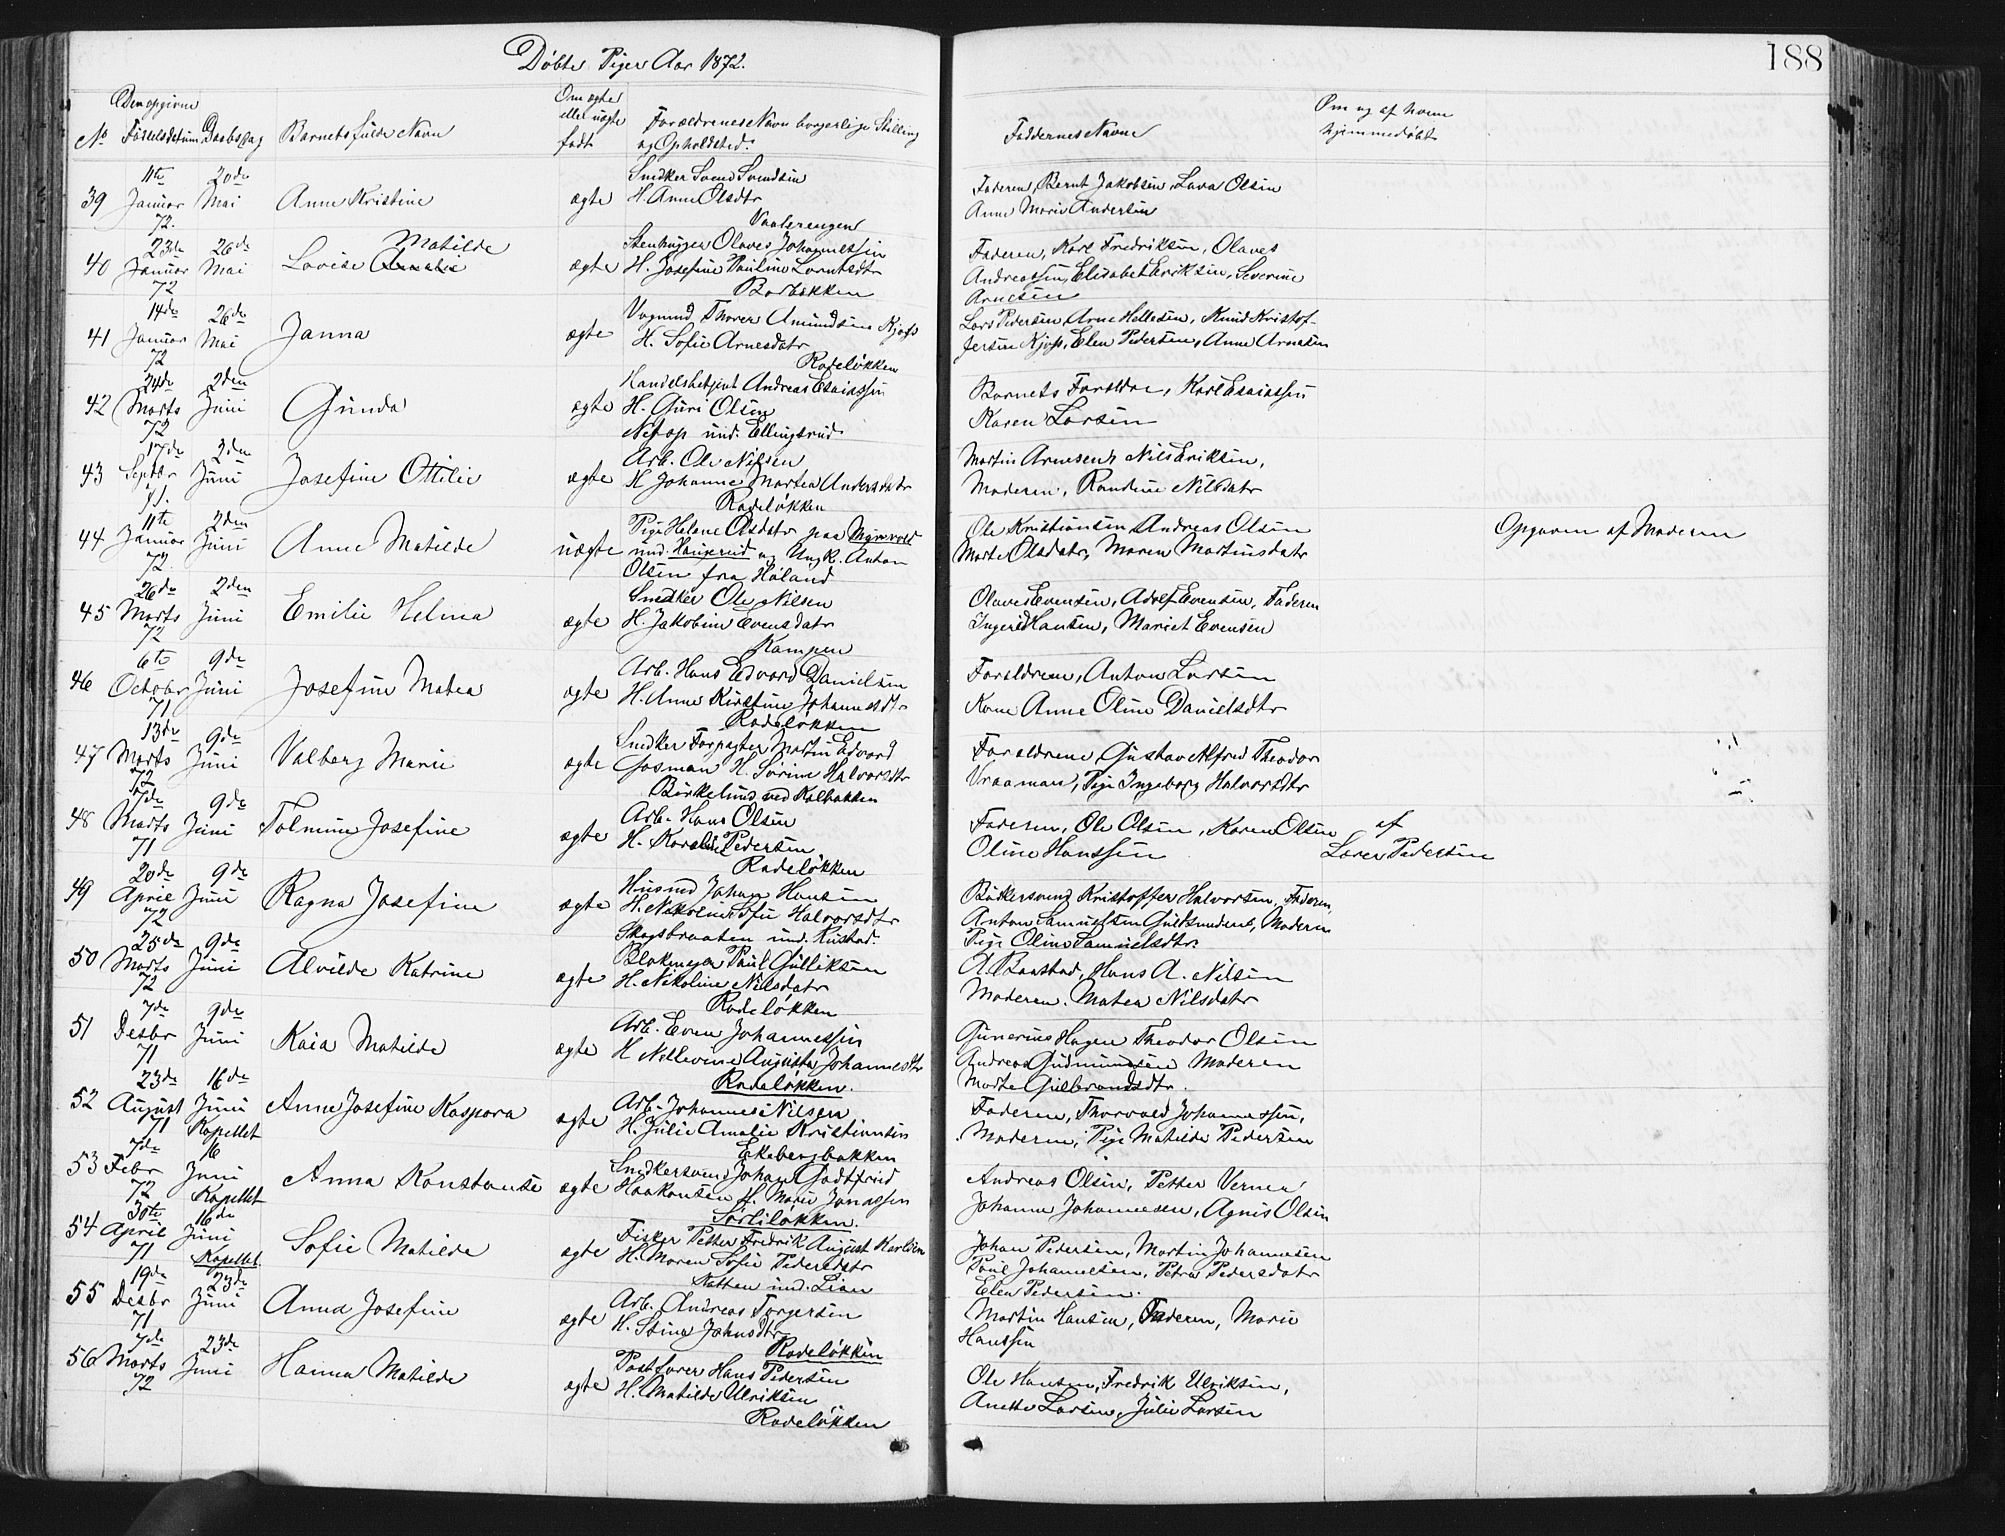 Døbte Piger Aar 1872.
188
No
Den opgivne
Fødselsdatum
Daabsdag
Barnets fulde Navn
Om ægte
eller uægte
født
Forældrenes Navn borgerlige Stilling
og Opholdsted.
Faddernes Navne
Om og af hvem
hjemmedøbt
39
11te
Januar
72.
20de
Mai
Anne Kristine
ægte
Snedker Svend Svendsen
H. Anne Olsdtr
Vaalerengen
Faderen, Bernt Jakobsen, Lava Olsen
Anne Marie Andersen
40
23de
Januar
72
26de
Mai
Matilde
Lovise Amalie
ægte
Stenhugger Olaves Johannessen
H. Josefine Pauline Lorntsdtr
Borbakken
Faderen, Karl Fredriksen, Olaves
Andreassen, Elisabet Eriksen, Severine
Arnesen
41
14de
Januar
72
26de
Mai
Janna
ægte
Vognmd Thorer Amundsen Kjos
H. Sofie Arnesdatr
Rodeløkken
Lars Pedersen, Arne Hellesen, Knud Kristof-
fersen Kjos, Elen Pedersen, Anne Arnesen
42
24de
Marts
72
2den
Juni
Gunda
ægte
Handelsbetjent Andreas Esaiassen
H. Guri Olsen
und. Ellingsrud
Barnets Forældre, Karl Esaiassen
Karen Larsen
43
17de
Septbr
71.
2den
Juni
Josefine Ottilie
ægte
Arb. Ole Nilsen
H Johanne Martea Andersdatr
Rodeløkken
Martin Arnesen, Nils Eriksen,
Moderen, Randine Nilsdatr
44
11te
Januar
72.
2den
Juni
Anne Matilde
uægte
Pige Helene Olsdatr paa Myrvold
und. Haugerud og Ungk. Anton
Olsen fra Høland
Ole Kristiansen Andreas Olsen
Marte Olsdatr, Maren Martinsdatr
Opgaven af Moderen
45
26de
Marts
72
2den
Juni
Emilie Helina
ægte
Snedker Ole Nilsen
H. Jakobine Evensdatr
Kampen
Olaves Evensen, Adolf Evensen, Faderen
Ingerid Hansen, Mariet Evensen
46
6te
October
71
9de
Juni
Josefine Matea
ægte
Arb. Hans Edvard Danielsen
H. Anne Kirstine Johannesdtr
Rodeløkken
Forældrene, Anton Larsen
Kone Anne Oline Danielsdtr
47
13de
Marts
72
9de
Juni
Valborg Marie
ægte
Snedker Forpagter Martin Edvard
Gosman H. Sørine Halvorsdtr
Birkelund ved Kalbakken
Forældrene, Gustav Alfred Theodor
Vraaman, Pige Ingeborg Halvorsdtr
48
7de
Marts
71
9de
Juni
Tolmine Josefine
ægte
Arb. Hans Olsen
H. Karoline Pedersen
Rodeløkken
Faderen, Ole Olsen, Karen Olsen
Oline Hanssen
af
Lærer Pedersen
49
20de
April
72
9de
Juni
Ragna Josefine
ægte
Husmd Johan Hansen
H. Nikoline Sofie Halvorsdtr
Skogsbraaten und. Rustad.
Bødkersvend Kristoffer Halvorsen, Faderen,
Anton Samuelsen Guldsmedene, Moderen
Pige Oline Samuelsdtr.
50
25de
Marts
72
9de
Juni
Alvilde Katrine
ægte
Blokmager Paul Gulliksen
H. Nikoline Nilsdatr
Rodeløkken
A. Baastad, Hans A. Nilsen
Moderen. Matea Nilsdatr
51
7de
Desbr
71
9de
Juni
Kaia Matilde
ægte
Arb. Even Johannessen
H Nellevine Augusta Johannesdtr
Rodeløkken.
Gunerius Hagen Theodor Olsen
Andreas Gudmundsen Moderen
Marte Gulbrandsdtr.
52
23de
August
71
16de
Juni
Kapellet
Anne Josefine Kaspara
ægte
Arb. Johannes Nilsen
H. Julie Amalie Kristiansen
Ekebergbakken
Faderen, Thorvald Johannessen,
Moderen, Pige Matilde Pedersen
53
7de
Febr
72
16
Juni
Kapellet
Anna Konstanse
ægte
Snedkersvend Johan Godtfred
Haakonsen H. Marie Jonassen
Sørliløkken.
Andreas Olsen, Petter Verner
Johanne Johannesen, Agnis Olsen
54
30te
April
71
16de
Juni
Kapellet.
Sofie Matilde
ægte
Fisker Petter Fredrik August Karlsen
H. Maren Sofie Pedersdatr
Natten und. Lian
Johan Pedersen, Martin Johannesen
Paul Johannesen, Petra Pedersdatr
Elen Pedersen.
55
19de
Desbr
71
23de
Juni
Anna Josefine
ægte
Arb. Andreas Torgersen
H. Stina Johnsdtr
Rodeløkken
Martin Hansen, Faderen, Marie
Hanssen
56
7de
Marts
72
23de
Juni
Hanna Matilde
ægte
Postfører Hans Pedersen
H. Matilde Ulriksen
Rodeløkken
Ole Hansen, Fredrik Ulriksen,
Anette Larsen, Julie Larsen